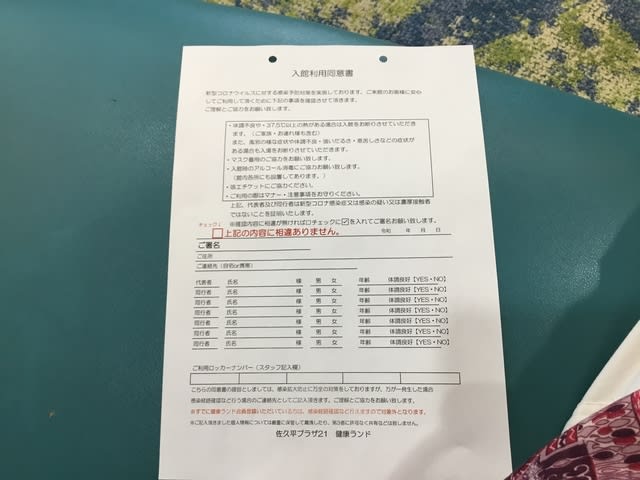 入館利用同意書
新型コロナウイルスに対する感染予防対策を実施しております。ご来館のお客様に安心
してご利用して頂くために下記の事項を確認させて頂きます。
ご理解とご協力をお願い致します。
・体調不良や・37.5℃以上の熱がある場合は入館をお断りさせていただき
ます。（ご家族・お連れ様も含む）
また、風邪の様な症状や体調不良・強いだるさ・息苦しさなどの症状が
ある場合も入場をお断りさせていただきます。
・マスク着用のご協力をお願い致します。
・入館時のアルコール消毒にご協力お願い致します。
（館内各所にも設置してあります。）
・咳エチケットにご協力ください。
・ご利用の際はマナー・注意事項をお守りください。
上記、代表者及び同行者は新型コロナ感染症又は感染の疑い又は濃厚接触者
ではないことを証明いたします。
※確認内容に相違が無ければ□チェックに☑を入れてご署名お願い致します。
チェック↓
□上記の内容に相違ありません。 令和 年 月 日
ご署名
ご住所
ご連絡先（自宅or携帯）
代表者 氏名 様 男 女 年齢 体調良好【YES・NO】
同行者 氏名 様 男 女 年齢 体調良好【YES・NO】
同行者 氏名 様 男 女 年齢 体調良好【YES・NO】
同行者 氏名 様 男 女 年齢 体調良好【YES・NO】
同行者 氏名 様 男 女 年齢 体調良好【YES・NO】
同行者 氏名 様 男 女 年齢 体調良好【YES・NO】
同行者 氏名 様 男 女 年齢 体調良好【YES・NO】
ご利用ロッカーナンバー（スタッフ記入欄）
こちらの同意書の趣旨としましては、感染拡大防止に万全の対策をしておりますが、万が一発生した場合
感染経路確認など行う場合のご連絡先としてご記入頂きます。ご理解とご協力をお願い致します。
※すでに健康ランド会員登録いただいている方は、感染経路確認など行えますので対象外となります。
※ご記入頂きました個人情報については厳重に保管して雇用したり、第3者に許可なく共有などは致しません。
佐久平プラザ21 健康ランド